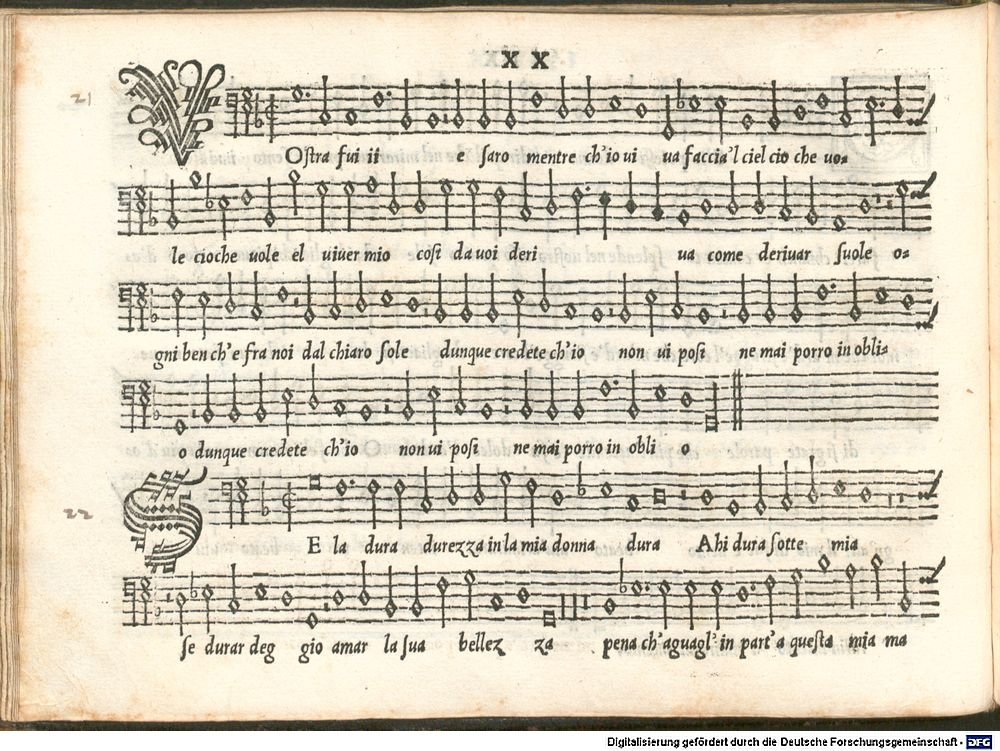 X X
21
VOstra fui ii e saro mentre ch'io ui ua faccia'l ciel cio che uo-
le cioche uole el uiuer mio cosi da uoi deri ua come deriuar suole o-
gni ben ch'e fra noi dal chiaro sole dunque credete ch'io non ui posi ne mai porro in obli-
dunque credete ch'io non ui posi ne mai porro in obli o
22
SE la dura durezza in la mia donna dura Ahi dura sotte mia
se durar deg gio amar la sua bellez za pena ch'aguagl' in part' a questa mia ma
Digitalisierung gefördert durch die Deutsche Forschungsgemeinschaft - DFG